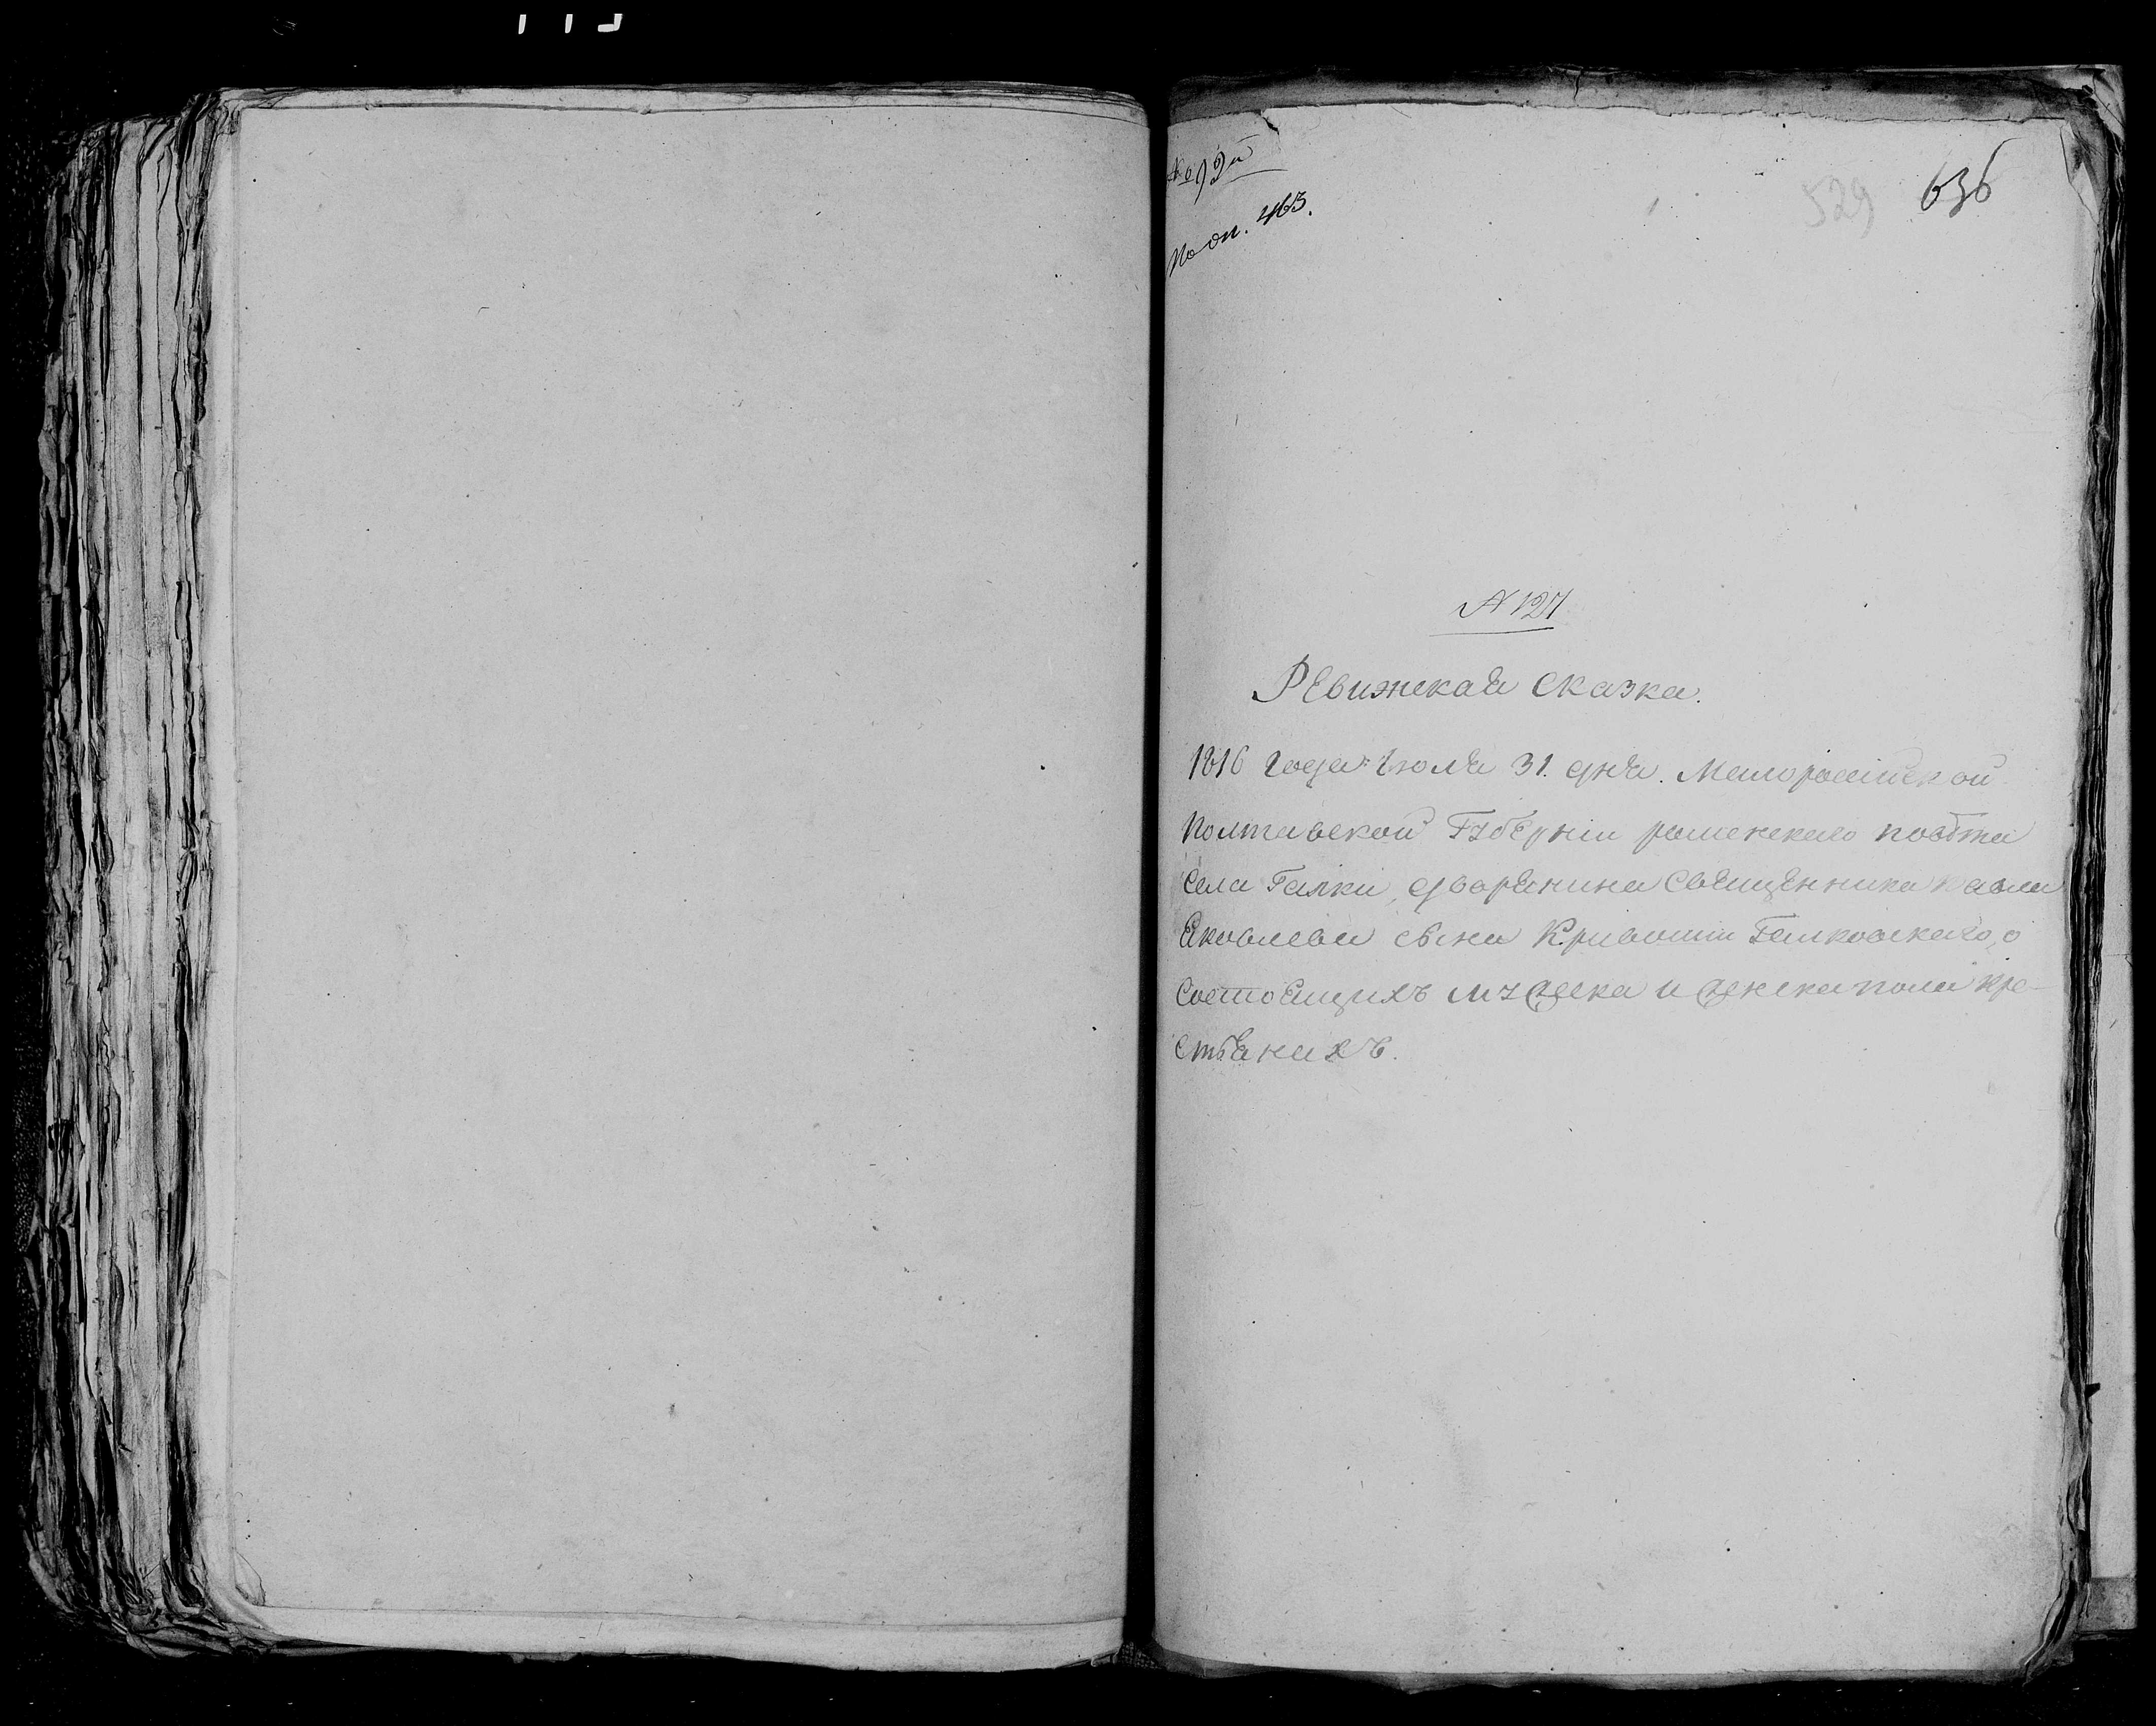 № 92й
По оп. 463.
529 636
N 127
Ревижская Сказка.
1816 года: Июля 31. дня. Малоросийской
Полтавской Губерніи роменского повѣта
Села Галки, дворянина Священника Павла
Яковлева сына Кривоши Галковского, о
Состоящихъ мужеска и женска пола кре-
стьянахъ.